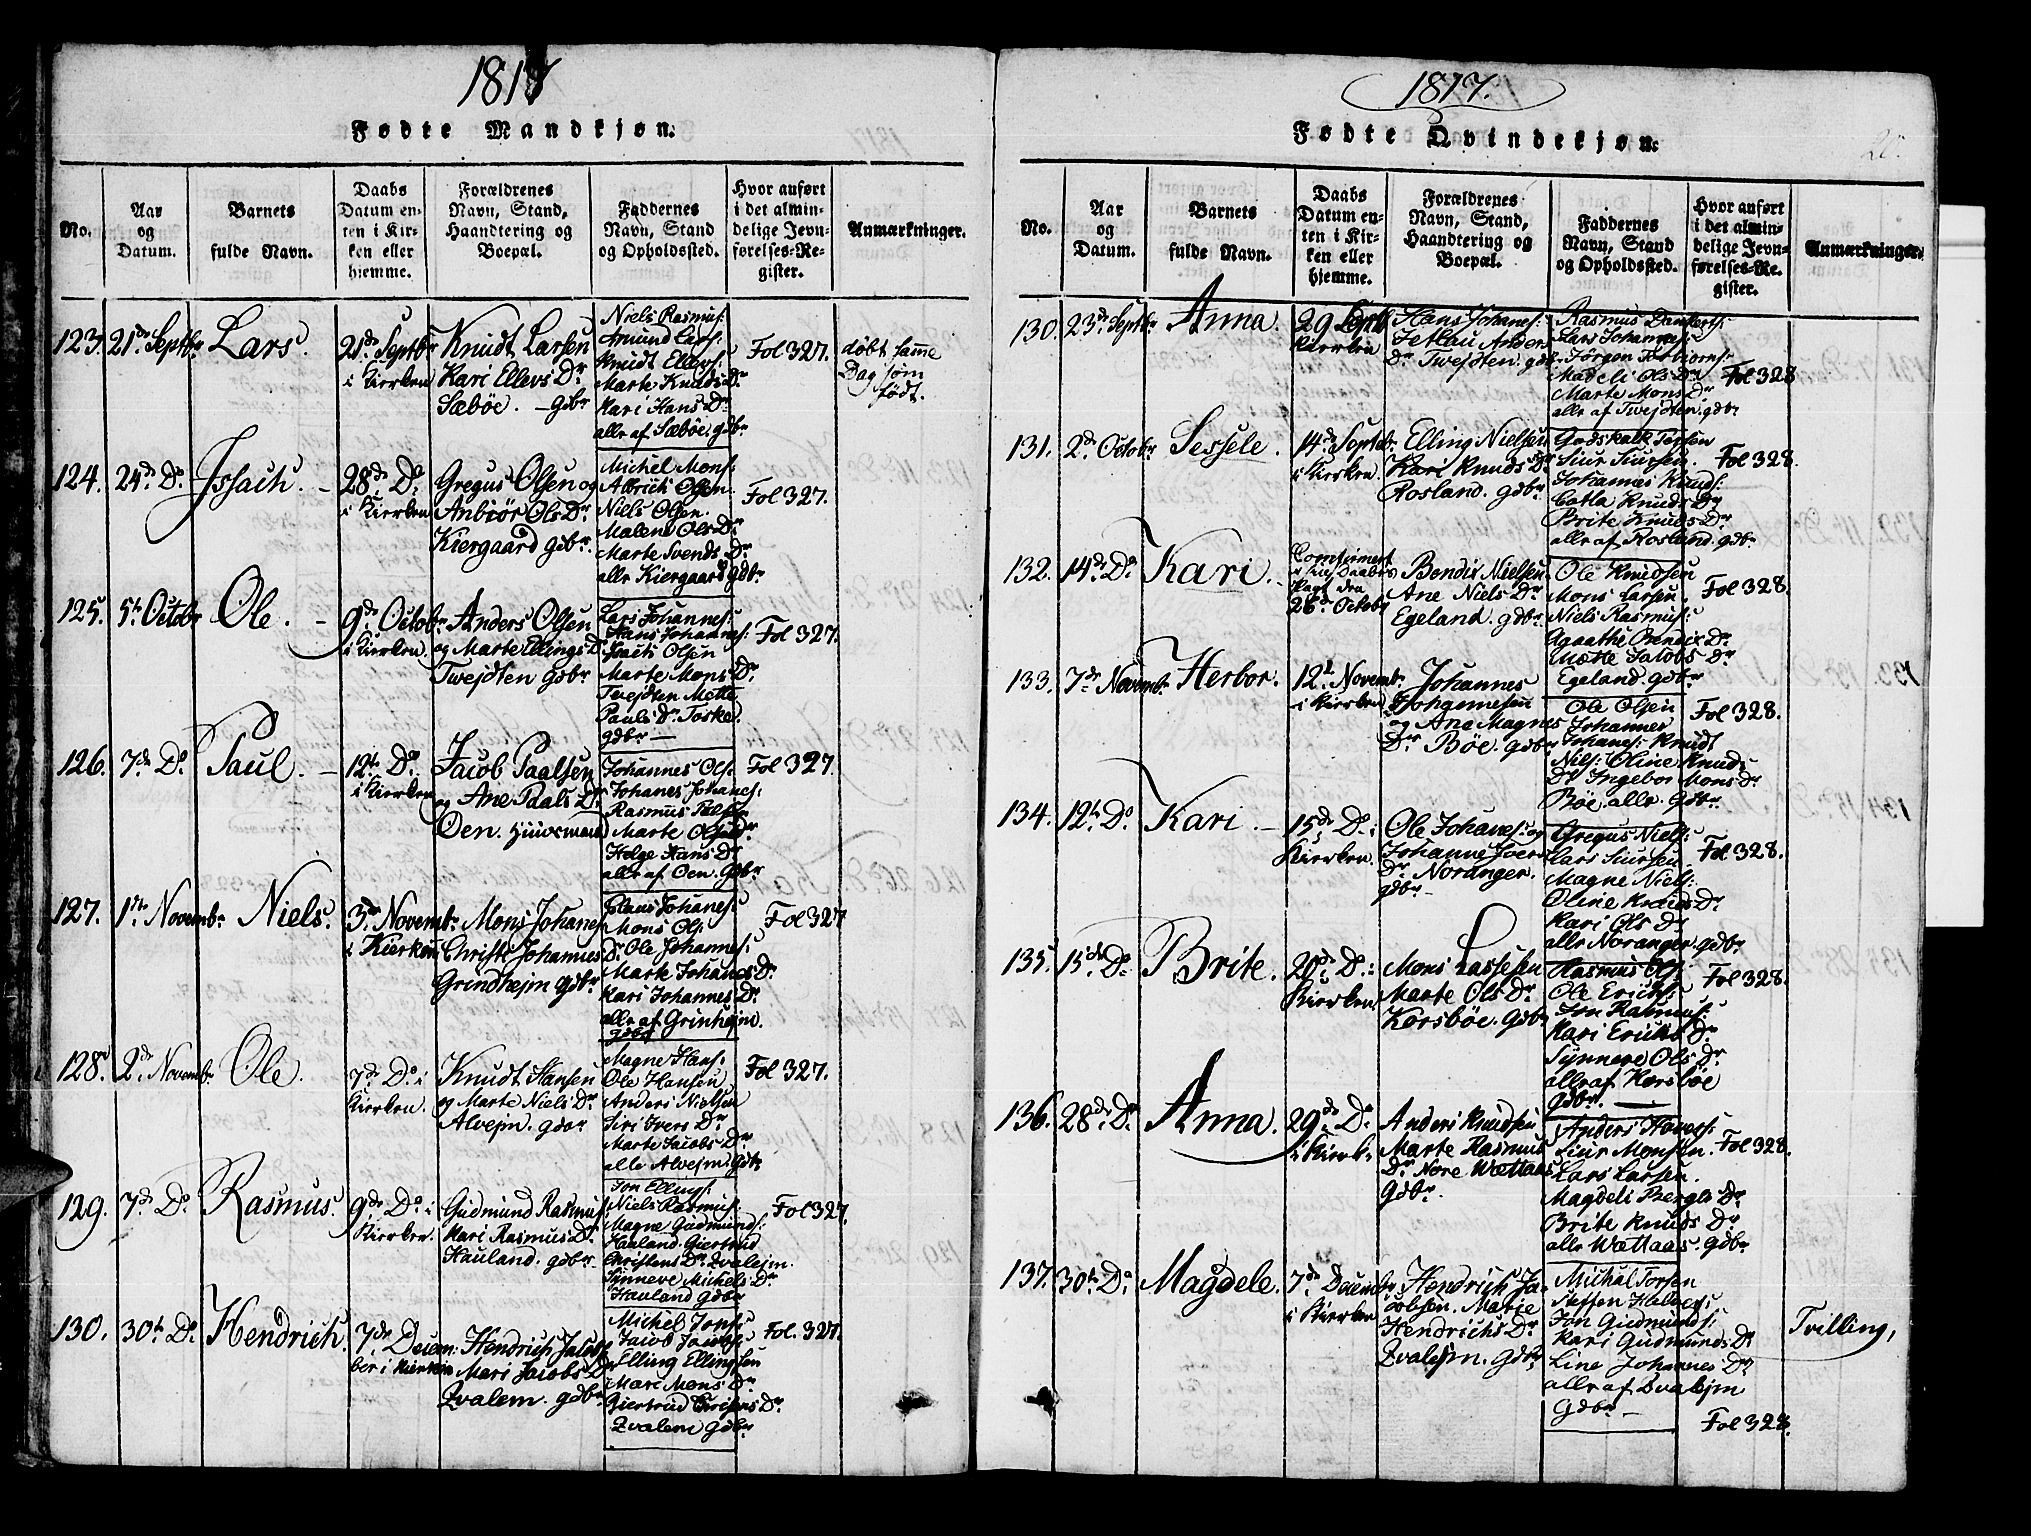 1817
Fødte Mandkjøn.
No.
Aar
og
Datum.
Barnets
fulde Navn.
Daabs
Datum en-
ten i Kir-
ken eller
hjemme.
Forældrenes
Navn, Stand,
Haandtering og
Boepæl.
Faddernes
Navn, Stand
og Opholdssted.
Hvor anført
i det almin-
delige Jevn-
førelses-Re-
gister.
Anmærkninger.
123. 21de Septbr Lars.
21de Septbr
i Kierken
Knudt Larsen
Kari Ellevs Dr
Sæbøe. – gdbr
Niels Rasmus:
Amund Lars:
Knudt Ellevs:
Marte Knuds Dr
Kari Hans Dr
alle af Sæbøe. gdbr
Fol 327.
døbt samme
Dag som
født.
124. 24de Do Issach. –
28de Do
i Kierken
Gregus Olsen og
Anbiør Ols Dr
Kiergaard gdbr
Michel Mons:
Albrich Olsen.
Niels Olsen.
Malene Ols Dr
Marte Svends Dr
alle Kiergaard gdbr
Fol 327.
125. 5te Octobr Ole. –
9de Octobr
i Kierken
Anders Olsen
og Marte Ellings Dr
Twejdten gdbr
Lars Johannes:
Hans Johannes:
Olsen
Marte Mons Dr
Twejdten Mette
Pauls Dr Toske.
gdbr —
Fol 327.
126. 7de Do Paul. –
12te Do
i Kierken
Jacob Paalsen
og Ane Paals Dr
Oen. Huusmand
Johannes Ols:
Johanes Johanes:
Rasmus
Marte Ols Dr
Helge Hans Dr
alle af Oen. Gdbr
Fol 327.
127. 1ste Novembr Niels.
3de Novembr
i Kierken
Mons Johanes:
Christi Johannes Dr
Grindhejm gdbr
Claus Johanes:
Mons Ols:
Ole Johannes:
Marte Johanes Dr
Kari Johannes Dr
alle af Grinhejm.
gdbr
Fol 327
128. 2de Novembr Ole.
7de Do i
Kierken.
Knudt Hansen
og Marte Niels Dr
Alvejm. gdbr
Magne Hans:
Ole Hansen
Anders Nielsen
Siri Ivers Dr
Marte Jacobs Dr
alle Alvejm. Gdbr
Fol 327.
129. 7de Do Rasmus.
9de Do i
Kierken.
Gudmund Rasmus:
Kari Rasmus Dr
Hauland. gdbr
Jon Ellings:
Niels Rasmus:
Magne Gudmunds:
Hauland. Giertrud
Christens Dr Zvalejm.
Synneve Michels Dr
Hauland gdbr
Fol 327.
130. 30te Do Hendrich
7de Decem-
ber i Kierken
Hendrich Jacobs:
Mari Jacobs Dr
Zvalem. gdbr
Michel Jons:
Jacob Jacobs:
Elling Ellingsen
Mari Mons Dr
Giertrud Dr
Zvalem gdbr
Fol. 327.
1817.
Fødte Qvindekjøn.
20.
No.
Aar
og
Datum.
Barnets
fulde Navn.
Daabs
Datum en-
ten i Kir-
ken eller
hjemme.
Forældrenes
Navn, Stand,
Haandtering og
Boepæl.
Faddernes
Navn, Stand
og Opholdssted.
Hvor anført
i det almin-
delige Jevn-
førelses-Re-
gister.
Anmærkninger.
130. 23de Septbr Anna.
29 Septb
Kierken
Hans Johanes:
Anders
Dr Twejdten. gdbr
Rasmus Dankerts:
Lars Johannes:
Jørgen Torbiørns:
Madeli Ols Dr
Marte Mons Dr
alle af Twejdten. gdbr
Fol 328
131. 2de Octobr Sessele.
14de Septbr.
i Kierken
Elling Nielsen
Kari Knuds Dr
Rosland. gdbr
Godskalk
Siur Siursen.
Johannes Knuds:
Knuds Dr
Brite Knuds Dr
alle af Rosland. gdbr
Fol 328.
132. 14de Do Kari. –
26de Octobr
Bendix Nielsen.
Ane Niels Dr
Egeland. gdbr
Ole Knudsen
Mons Larsen.
Niels Rasmus:
Agaathe Dr
Mette Jacobs Dr
Egeland. gdbr
Fol 328.
133. 7de Novembr Herbor.
12te Novembr
i Kierken
Johannes
Johannesen
og Ane Magnes
Dr Bøe. gdbr
Ole Olsen
Johannes
Johanes: Knudt
Nils: Oline Knuds
Dr Ingebor Mons Dr
Bøe. alle. Gdbr.
Fol 328.
134. 12te Do Kari. –
15de Do i
Kierken.
Ole Johanes: og
Johanne Ivers
Dr Noranger.
gdbr –
Gregus Niels:
Lars Siursen
Magne Niels:
Oline Knuds Dr
Kari Ols Dr
alle Noranger. gdbr
Fol 328.
135. 15de Do Brite.
20de D:
Kierken
Mons Lassesen
Marte Ols Dr
Korsbøe. gdbr
Rasmus Ols:
Ole Erichs:
Jon Rasmus:
Kari Erichs Dr
Synneve Ols Dr
alle af Korsbøe
gdbr. —
Fol 328.
136. 28de Do Anna.
29de Do
i Kierk:
Anders Knudsen
Marte Rasmus
Dr Nore Wættaas
Gdbr.
Anders
Siur Monsen.
Lars Larsen.
Magdeli Dr
Brite Knuds Dr
alle Wættaas. Gdbr
Fol 328.
137. 30te Do Magdele.
7de Decembr
i Kierken
Hendrich Ja-
cobsen. Marie
Hendrichs Dr
Zvalejm. Gdbr
Michal Torsen
Steffen
Jon Gudmunds:
Kari Gudmunds Dr
Line Johannes Dr
alle af Zvalejm
Gdbr –
Tvilling,
Fol 328.